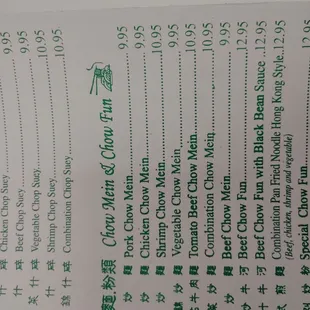 什 碎 Chicken Chop Suey 9.95
什 碎 Beef Chop Suey 9.95
菜 什 碎 Vegetable Chop Suey 9.95
什 碎 Shrimp Chop Suey 10.95
錦 什 碎 Combination Chop Suey 10.95
麵粉類 Chow Mein & Chow Fun
炒 麵 Pork Chow Mein 9.95
炒 麵 Chicken Chow Mein 9.95
炒 麵 Shrimp Chow Mein 10.95
炒 麵 Vegetable Chow Mein 9.95
牛 肉 麵 Tomato Beef Chow Mein 10.95
炒 麵 Combination Chow Mein 10.95
炒 麵 Beef Chow Mein 9.95
炒 牛 河 Beef Chow Fun 12.95
牛 河 Beef Chow Fun with Black Bean Sauce 12.95
煎 麵 Combination Pan Fried Noodle Hong Kong Style 12.95
(Beef, chicken, shrimp and vegetable)
炒 粉 Special Chow Fun 12.95